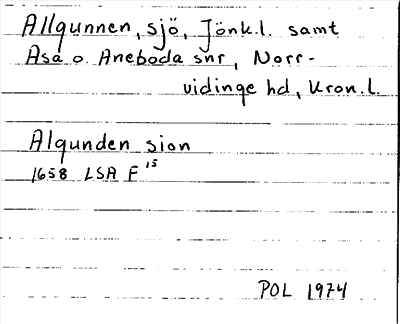 Allgunnen, sjö, Jönk.l. samt
Asa o. Aneboda snr, Norr-
vidinge hd, Kron.l.
Algunden sion
1658 LSA F 15
POL 1974